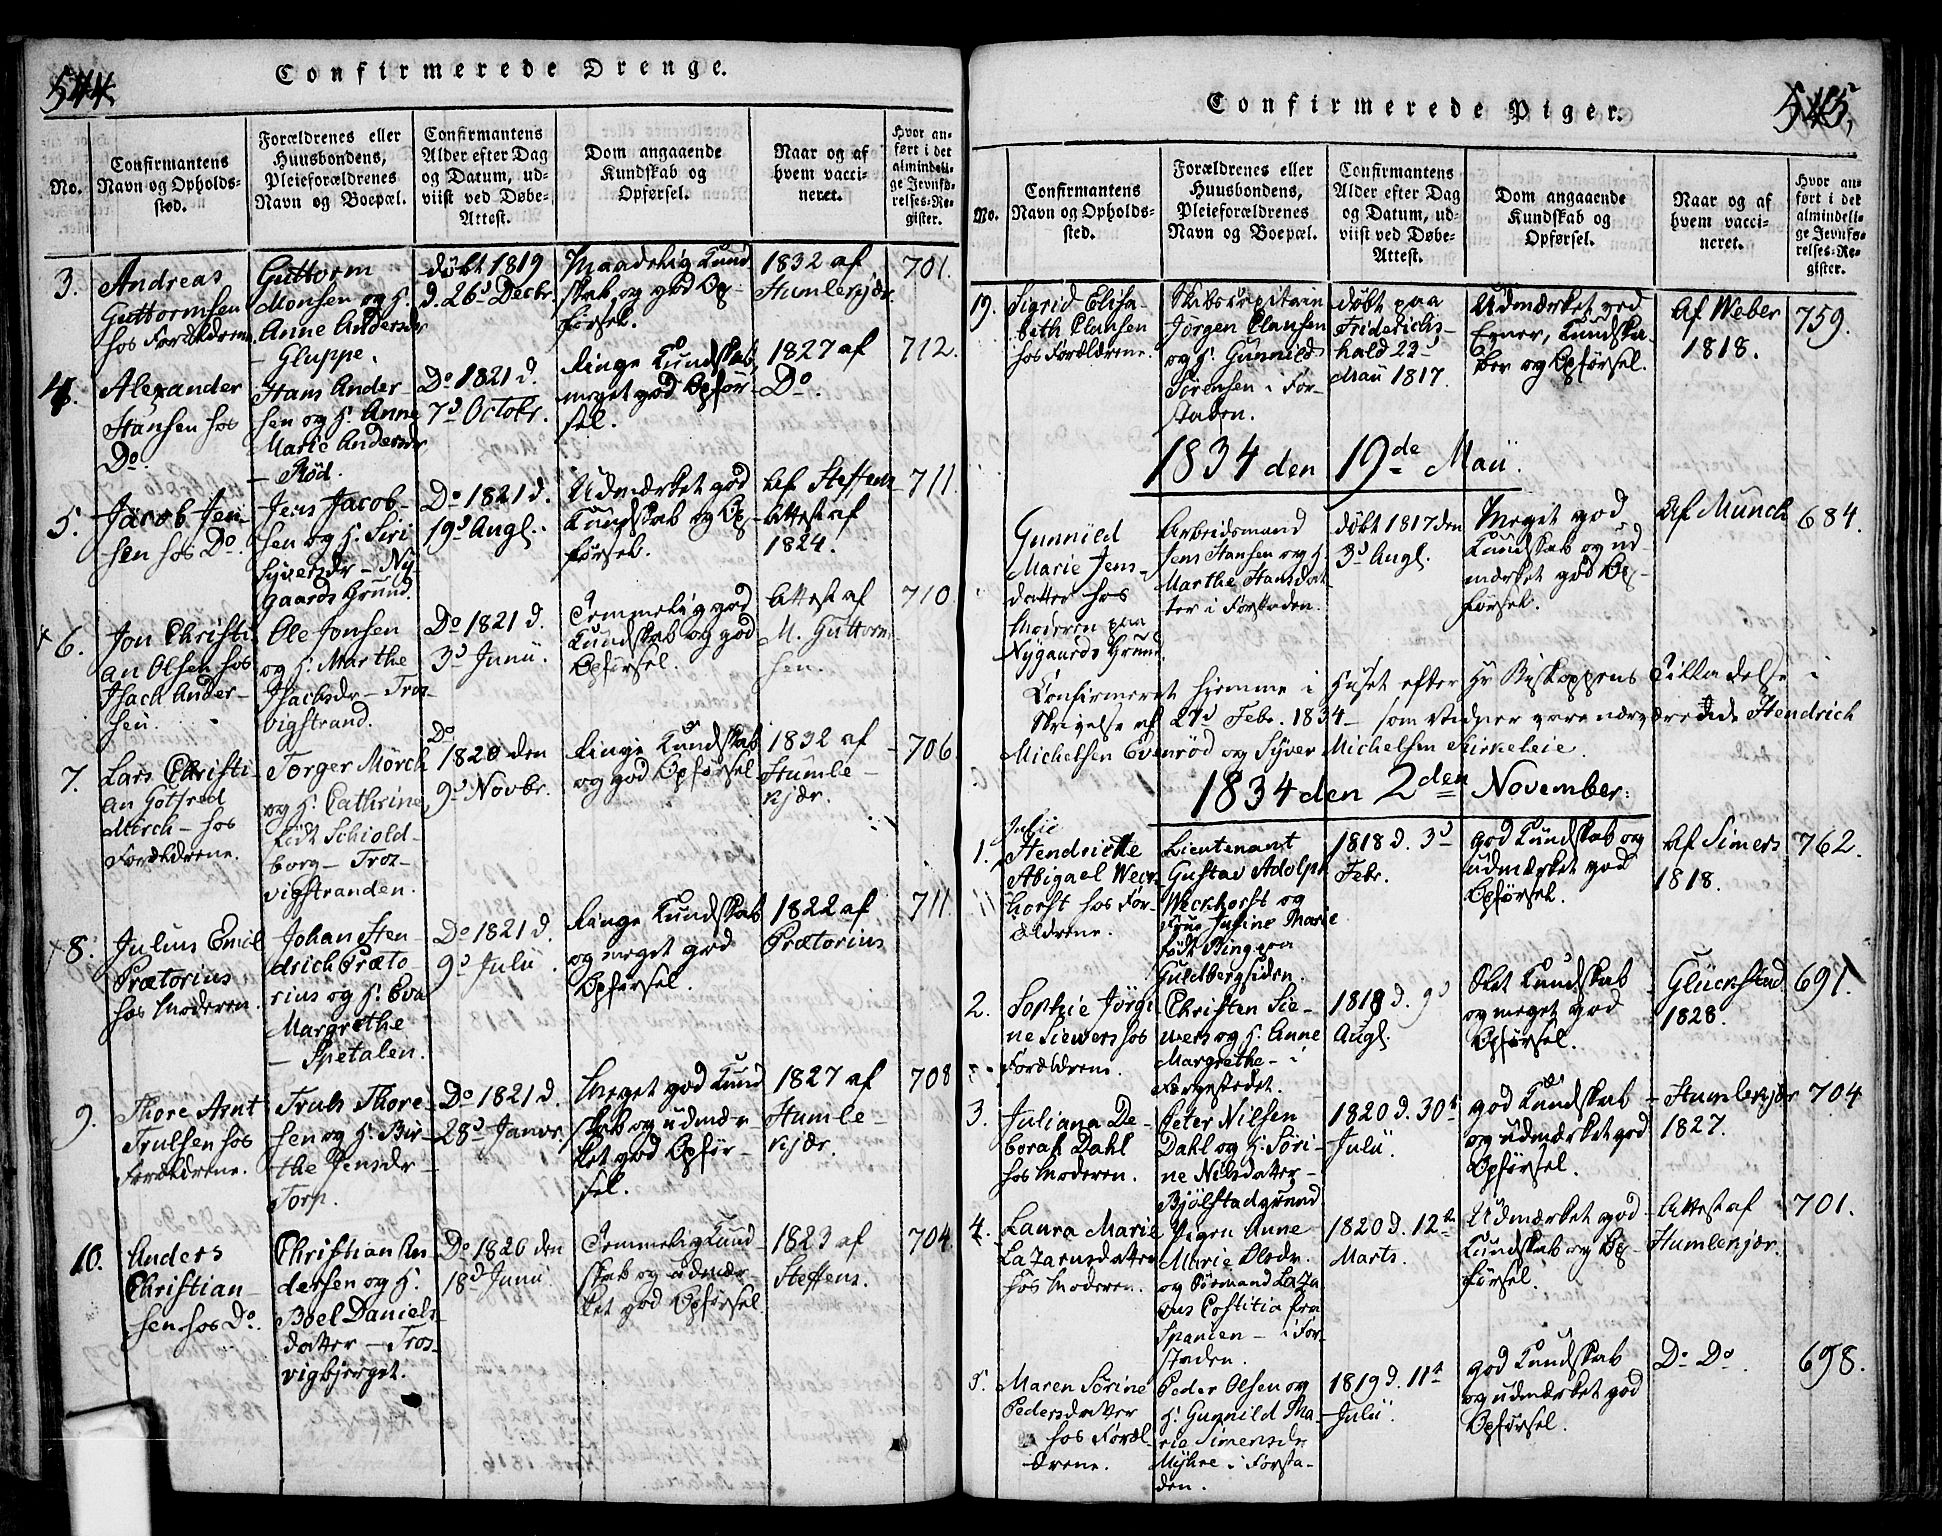 544.
Confirmerede Drenge.
No.
Confirmantens
Navn og Opholds-
sted.
Forældrenes eller
Huusbondens,
Pleieforældrenes
Navn og Boepæl.
Confirmantens
Alder efter Dag
og Datum, ud-
viist ved Døbe-
Attest.
Dom angaaende
Kundskab og
Opførsel.
Naar og af
hvem vacci-
neret.
Hvor an-
ført i det
almindeli-
ge Jevnfø-
relses-Re-
gister.
3.
Andreas
Guttormsen
hos Forældrene
Guttorm
Monsen og H.
Anne Andersdr
- Gluppe.
døbt 1819
d. 26d Decbr.
Maadelig Kund
skab og god Op-
førsel.
1832 af
Humlekjær
701.
4.
Alexander
Hansen hos
Do.
Hans Ander-
sen og H. Anne
Marie Andersdr
- Röd.
Do 1821 d.
7d Octobr.
Ringe Kundskab,
meget god Opfør-
sel.
1827 af
Do.
712.
5.
Jacob Jen-
sen hos Do.
Jens Jacob-
sen og H. Siri
Syversdr - Ny
gaards Grund.
Do 1821 d.
19d Augl.
Udmærket god
Kundskab og Op-
førsel.
Af Steffens
Attest af
1824.
711.
6.
Jon Christi
an Olsen hos
Isach Ander-
sen.
Ole Jonsen
og H. Marthe
Isachsdr - Tros-
vigstrand.
Do 1821 d.
3d Junii.
Temmelig god
Kundskab og god
Opførsel.
Attest af
M. Guttorm
sen.
710.
7.
Lars Christi-
an Gotfred
Mörch - hos
Forældrene.
Torger Mörch
og H. Cathrine
født Schiold-
borg - Tros-
vigstranden.
Do
1820 den
9d Novbr.
Ringe Kundskab
og god Opførsel
1832 af
Humle-
kjær.
706.
8.
Julius Emil
Prætorius
hos Moderen.
Johan Hen-
drich Præto
rius og H. Eva
Margrethe
- Spetalen.
Do 1821 d.
9d Julii.
Ringe Kundskab
og meget god
Opførsel.
1822 af
Prætorius
711
9.
Thore Arnt
Trulsen hos
Forældrene.
Truls Thore
sen og H. Bir-
the Jensdr -
Torp.
Do 1821 d.
28d Janvr.
Meget god Kund
skab og udmær-
ket god Opfør-
sel.
1827 af
Humle-
kjær.
708
10.
Anders
Christian-
sen hos Do.
Christian An
dersen og H.
Boel Daniels-
datter - Tros-
vigbjerget.
Do 1820 den
18d Junii
Temmelig Kund-
skab og udmær-
ket god Opførsel
1823 af
Steffens.
704.
545.
Confirmerede Piger.
No.
Confirmantens
Navn og Opholds-
sted.
Forældrenes eller
Huusbondens,
Pleieforældrenes
Navn og Boepæl.
Confirmantens
Alder efter Dag
og Datum, ud-
viist ved Døbe-
Attest.
Dom angaaende
Kundskab og
Opførsel.
Naar og af
hvem vacci-
neret.
Hvor an-
ført i det
almindeli-
ge Jevnfø-
relses-Re-
gister.
19.
Sigrid Elisa-
beth Clausen
hos Forældrene.
Skibscapitain
Jörgen Clausen
og H. Gunnild
Sörensen i For-
staden.
døbt paa
Friderichs-
hald 22d
Maii 1817.
Udmærket god
Evner, Kundska-
ber og Opførsel.
Af Weber
1818.
759.
1834 den 19de Maii.
Gunnild
Marie Jens-
datter hos
Moderen paa
Nygaards Grund.
Arbeidsmand
Jens Hansen og H.
Marthe Hansdat
ter i Forstaden.
døbt 1817 den
3d Augl.
Meget god
Kundskab og ud-
mærket god Op-
førsel.
Af Münch
684.
Confirmeret hjemme i Huset efter Hr Biskoppens Tilladelse i
Skrivelse af 27d Febr. 1834 - som Vidner vare nærværende Hendrich
Michelsen Evenröd og Syver Michelsen Kirkeleie.
1834 den 2den November.
1.
Julie
Hendriette
Abigael Weck-
horst hos For-
ældrene.
Lieutenant
Gustav Adolph
Weckhorst og
Frue Marie
født Bing paa
Guldbergsiden.
1818 d. 3d
Febr.
god Kundskab og
udmærket god
Opførsel.
Af Simers
1818.
762.
2.
Sophie Jörgi
ne Siewers hos
Forældrene.
Christen Sie-
wers og H. Anne
Margrethe - i
Færgestedet.
1818 d. 9d
Augl.
Slet Kundskab
og meget god
Opførsel.
Glückstad
1828.
691.
3.
Juliana De-
borah Dahl
hos Moderen.
Peter Nilsen
Dahl og H. Söri-
ne Nilsdatter -
Bjölstadgrund
1820 d. 30t
Julii.
god Kundskab
og udmærket god
Opførsel.
Humlekjær
1827.
704
4.
Laura Marie
Lazarusdatter
hos Moderen.
Pigen Anne
Marie Olsdr.
og Sømand Laza
rus Costitia fra
Spanien - i For-
staden.
1820 d. 12te
Marts.
Udmærket god
Kundskab og Op-
førsel.
Attest af
Humlekjær.
701.
5.
Maren Sörine
Pedersdatter
hos Foræl-
drene.
Peder Olsen og
H. Gunnild Ma-
rie Simensdr
Myhre i Forsta-
den.
1819 d. 11t
Julii.
god Kundskab
og udmærket god
Opførsel.
Do Do.
698.